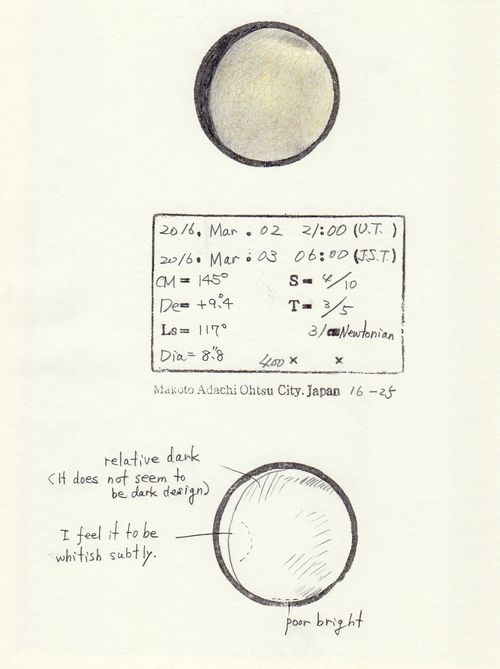 2016. Mar. 02 21:00 (U.T.)
2016. Mar. 03 06:00 (J.S.T.)
CM= 145° S= 4/10
De= +9.°4 T= 3/5
Ls= 117° Newtonian
Dia= 8."8 400× ×
Makoto Adachi Ohtsu City. Japan 16-25
relative dark
(It does not seem to
be dark design)
I feel it to be
whitish subtly.
poor bright